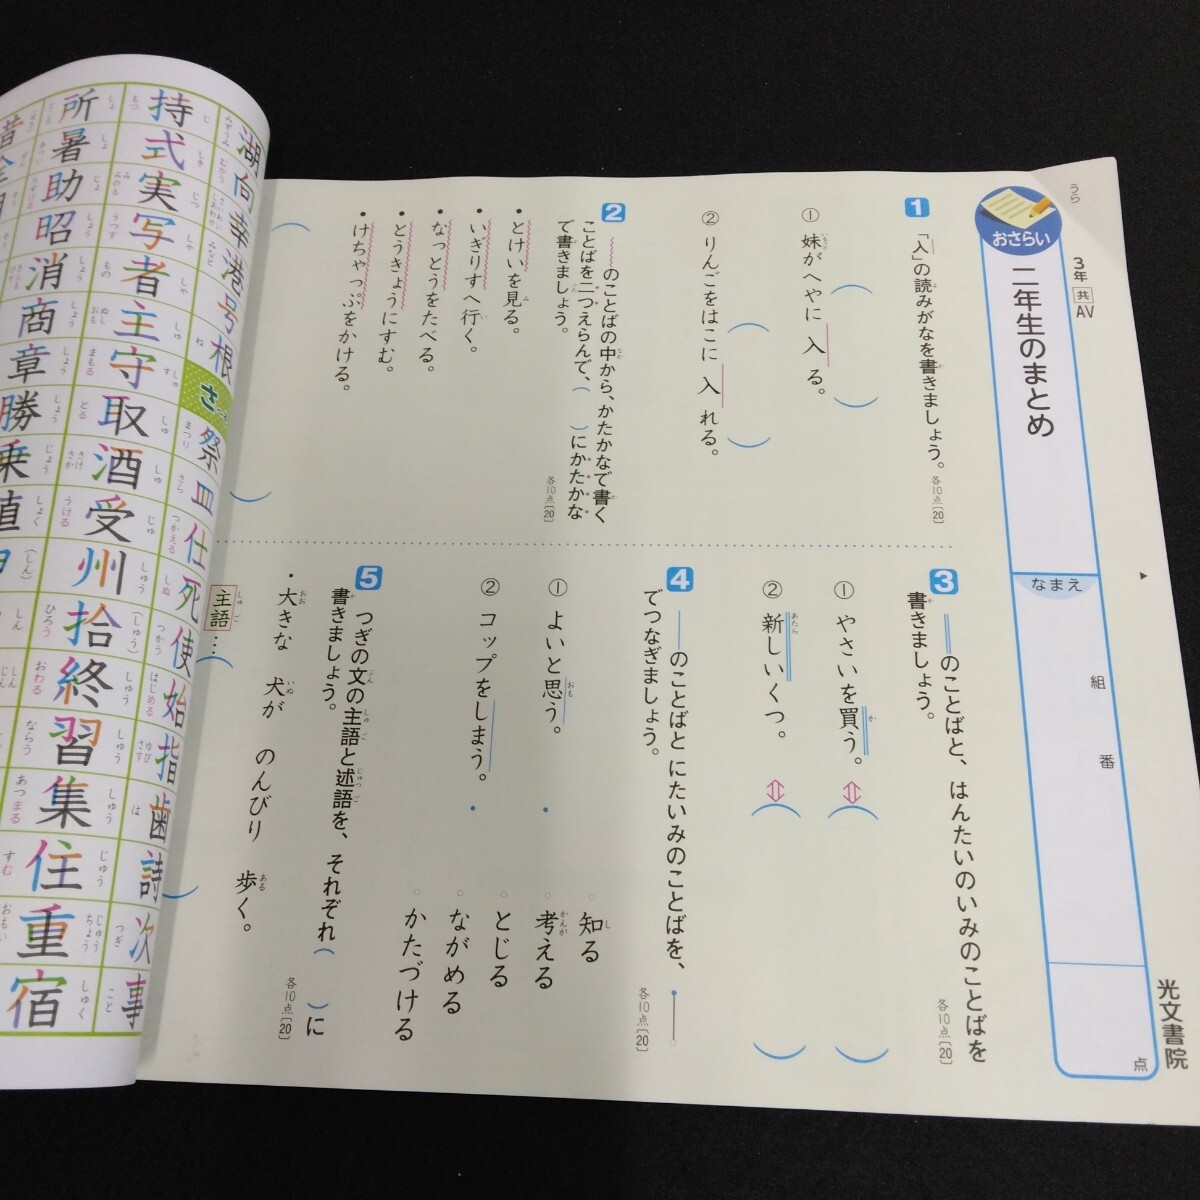 うら
3年 共 AV
おさらい
二年生のまとめ
なまえ
組
番
点
光文書院
1 「入」の読みがなを書きましょう。
各10点〔20〕
① 妹がへやに入る。
② りんごをはこに入れる。
2 のことばの中から、かたかなで書く
ことばを二つえらんで、( )にかたかな
で書きましょう。
各10点〔20〕
・とけいを見る。
・いぎりすへ行く。
・なっとうをたべる。
・とうきょうにすむ。
・けちゃっぷをかける。
3 のことばと、はんたいのいみのことばを
書きましょう。
各10点〔20〕
① やさいを買う。⇔( )
② 新しいくつ。⇔( )
4 のことばと にたいみのことばを、
でつなぎましょう。
各10点〔20〕
① よいと思う。
② コップをしまう。
知る
考える
とじる
ながめる
かたづける
5 つぎの文の主語と述語を、それぞれ( )に
書きましょう。
各10点〔20〕
・大きな 犬が のんびり 歩く。
主語…( )
湖 向 幸 港 号 根 さ 祭 皿 仕 死 使 始 指 歯 詩 次 事
持 式 実 写 者 主 守 取 酒 受 州 拾 終 習 集 住 重 宿
所 暑 助 昭 消 商 章 勝 乗 植
昔